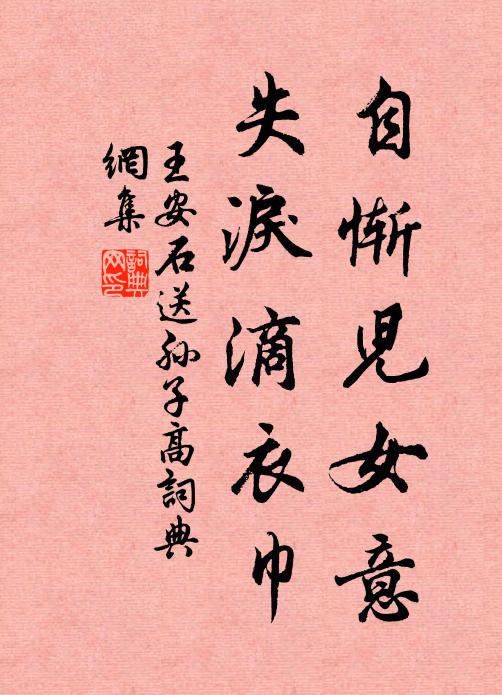 自慚児女意
失淚滴衣巾
王安石送孙子高詞典
網集
詞典
网印